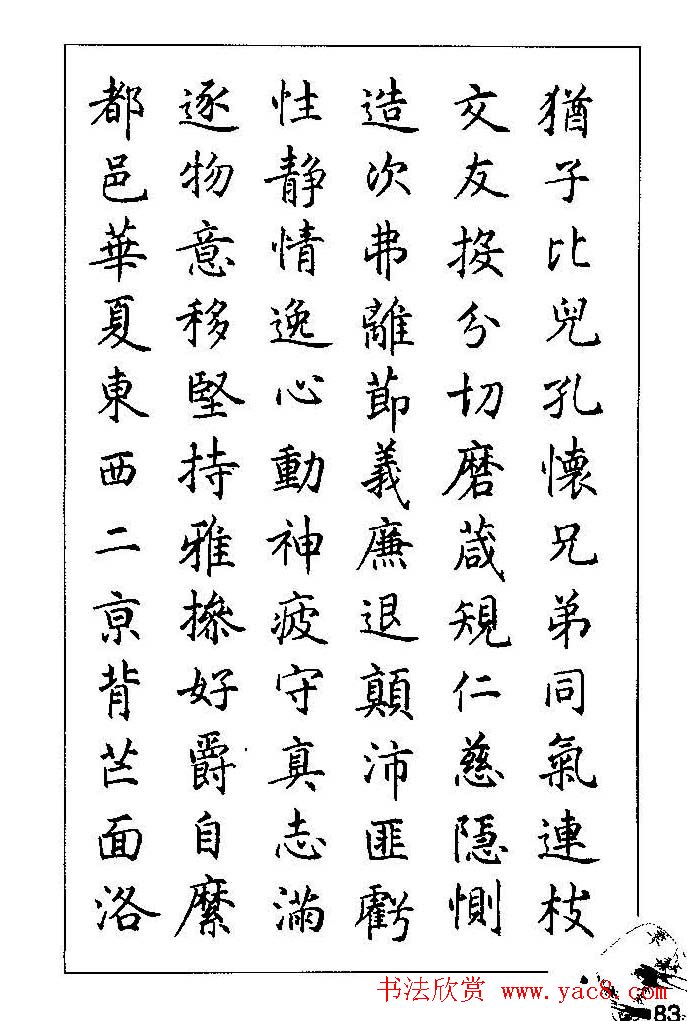 猶子比兒孔懷兄弟同氣連枝
交友投分切磨葴規仁慈隱惻
造次弗離節義廉退顛沛匪虧
性静情逸心動神疲守真志滿
逐物意移堅持雅操好爵自縻
都邑華夏東西二京背芒面洛
书法欣赏 www.yac8.com
83